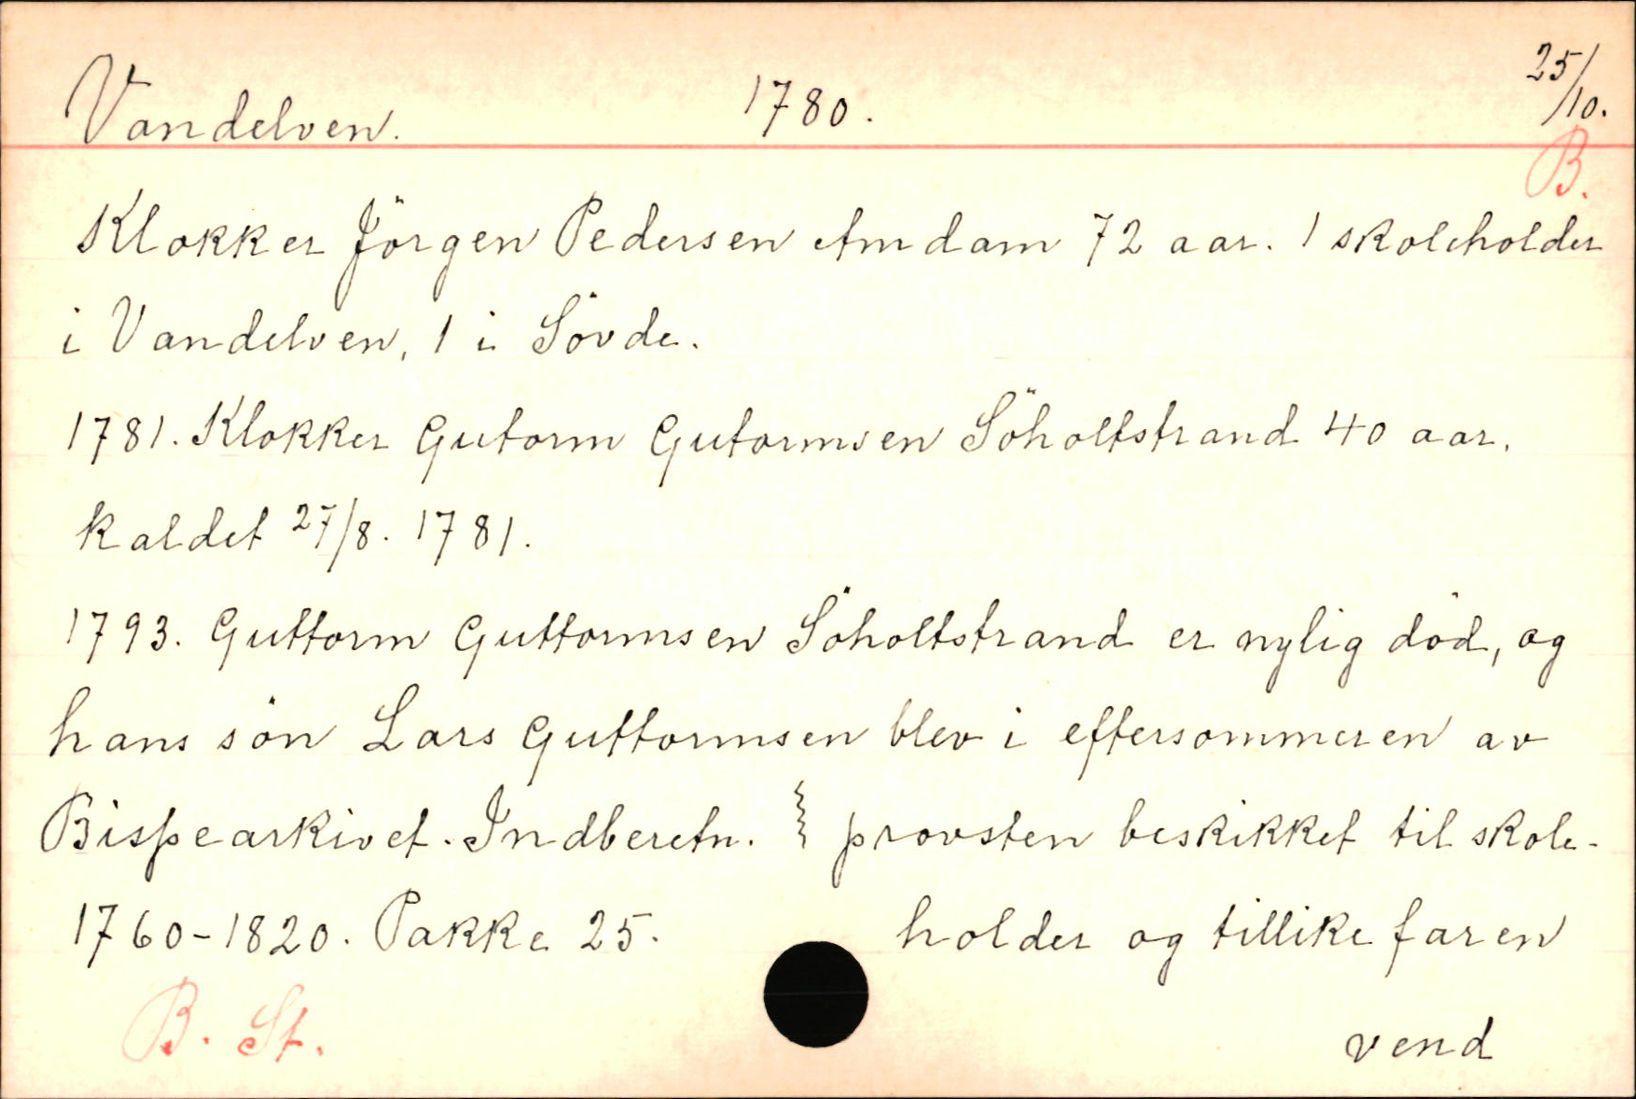 Vandelven. 1780. 25/10.
B.
Klokker Jörgen Pedersen Amdam 72 aar. 1 skoleholder
i Vandelven, 1 i Sövde.
1781. Klokker Gutorm Gutormsen Söholtstrand 40 aar.
kaldet 27/8. 1781.
1793. Guttorm Guttormsen Söholtstrand er nylig död, og
hans sön Lars Guttormsen blev i eftersommeren av
provsten beskikket til skole-
holder og tillike faren
vend
Bispearkivet. Indberetn.
1760-1820. Pakke 25.
B. St.